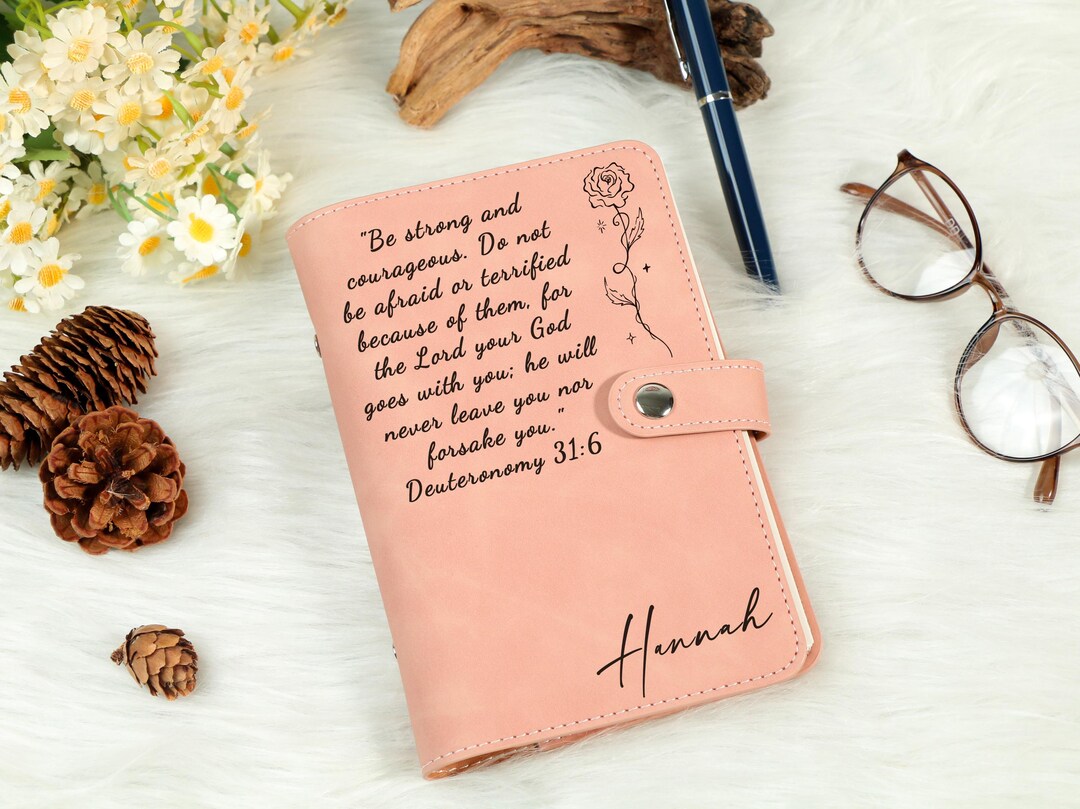 "Be strong and
courageous. Do not
be afraid or terrified
because of them, for
the Lord your God
goes with you; he will
never leave you nor
forsake you."
Deuteronomy 31:6
Hannah